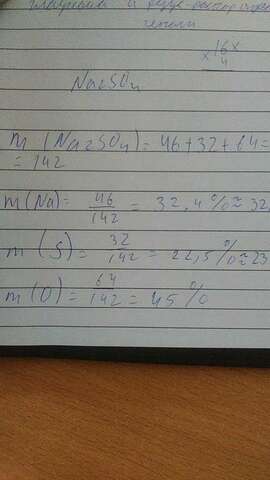 16
× 4
Na2SO4
m (Na2SO4) = 46+32+64=
= 142
m(Na) = 46/142 = 32,4% ≈ 32
m (S) = 32/142 = 22,5% ≈ 23
m (O) = 64/142 = 45%